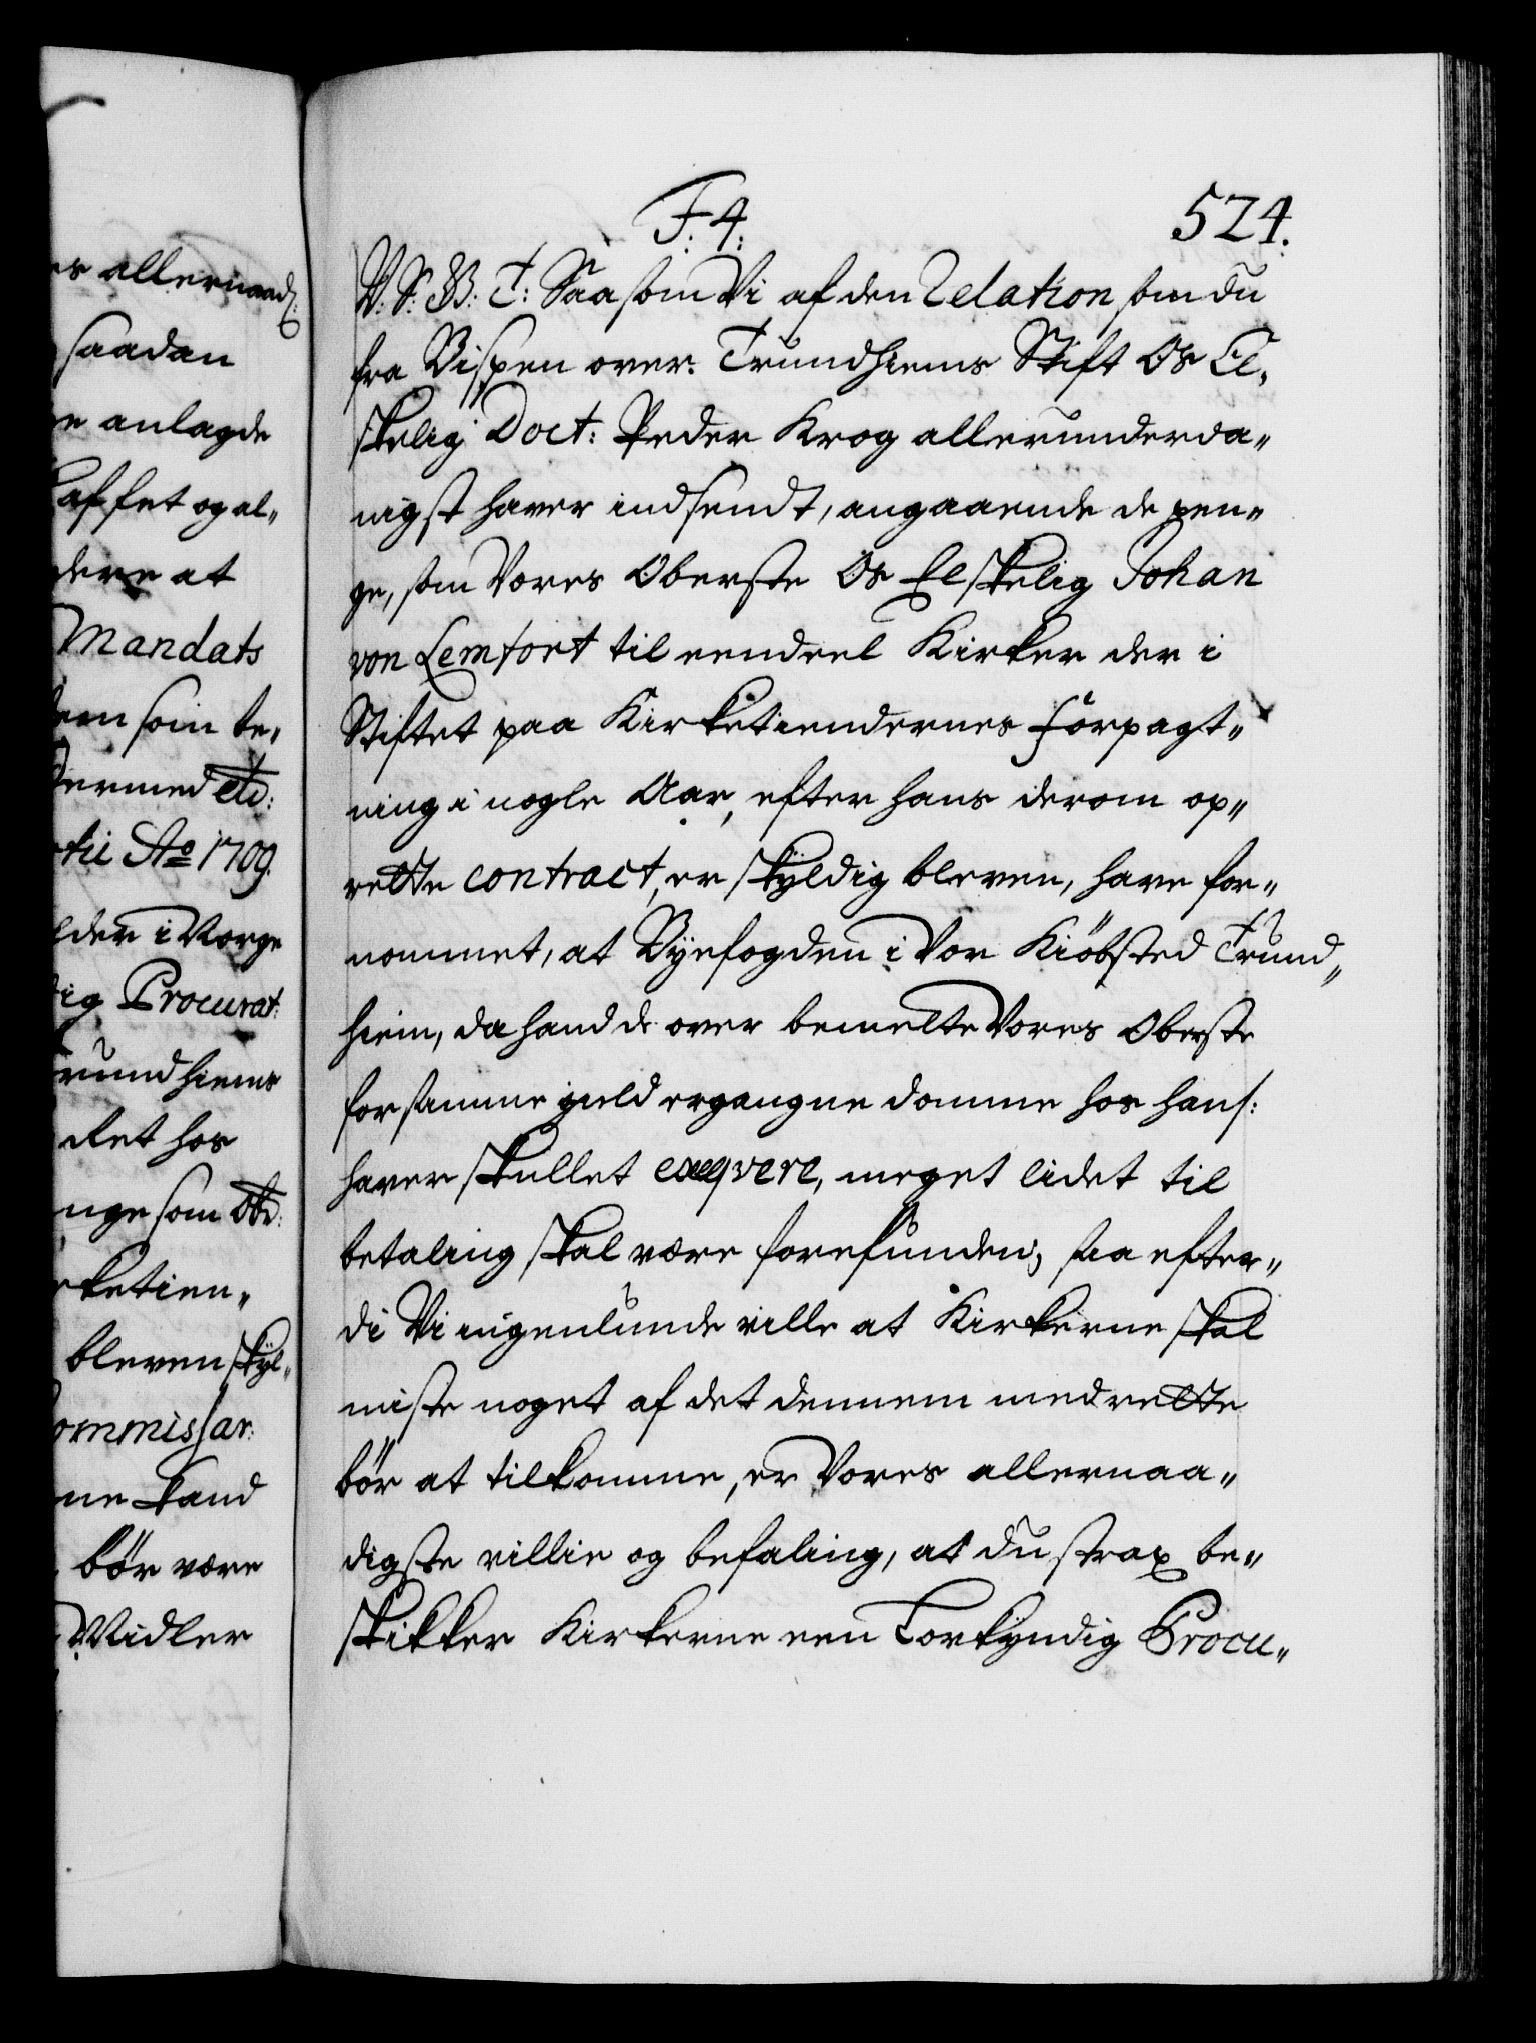 F: 4: 524.
V. S: B: T: Saasom Vi af den Relation som du
fra Bispen over Trundhiems Stift Os El„
skelig Doct: Peder Krog allerunderda„
nigst haver indsendt, angaaende de pen„
ge, som Vores Oberste Os Elskelig Johan
von Lemfort til eendeel Kirker der i
Stiftet paa Kirketiendernes forpagt„
ning i nogle Aar, efter hans derom op„
rette contract, er skyldig bleven, have for„
nommet, at Byefogden i Vor Kiöbsted Trund„
hiem, da hand de over bemelte Vores Oberste
for samme gield ergangne domme hos hans:
haver skullet exeqvere, meget lidet til
betaling skal være forefunden; saa efter„
di Vi ingenlunde ville at Kirkerne skal
miste noget af det dennem med rette
bör at tilkomme, er Vores allernaa„
digste villie og befaling, at du strax be„
skikker Kirkerne een Lovkyndig Procu„
es allernaad:
saadan
e anlagde
af fet og al„
dere at
Mandats
som be„
dermed etc:
tii Ao 1709.
lder i Norge
ig Procurat:
rundhiems
det hos
nge som Obr:
rketien„
bleven skyl„
ommissar:
ne kand
bör være
Midler